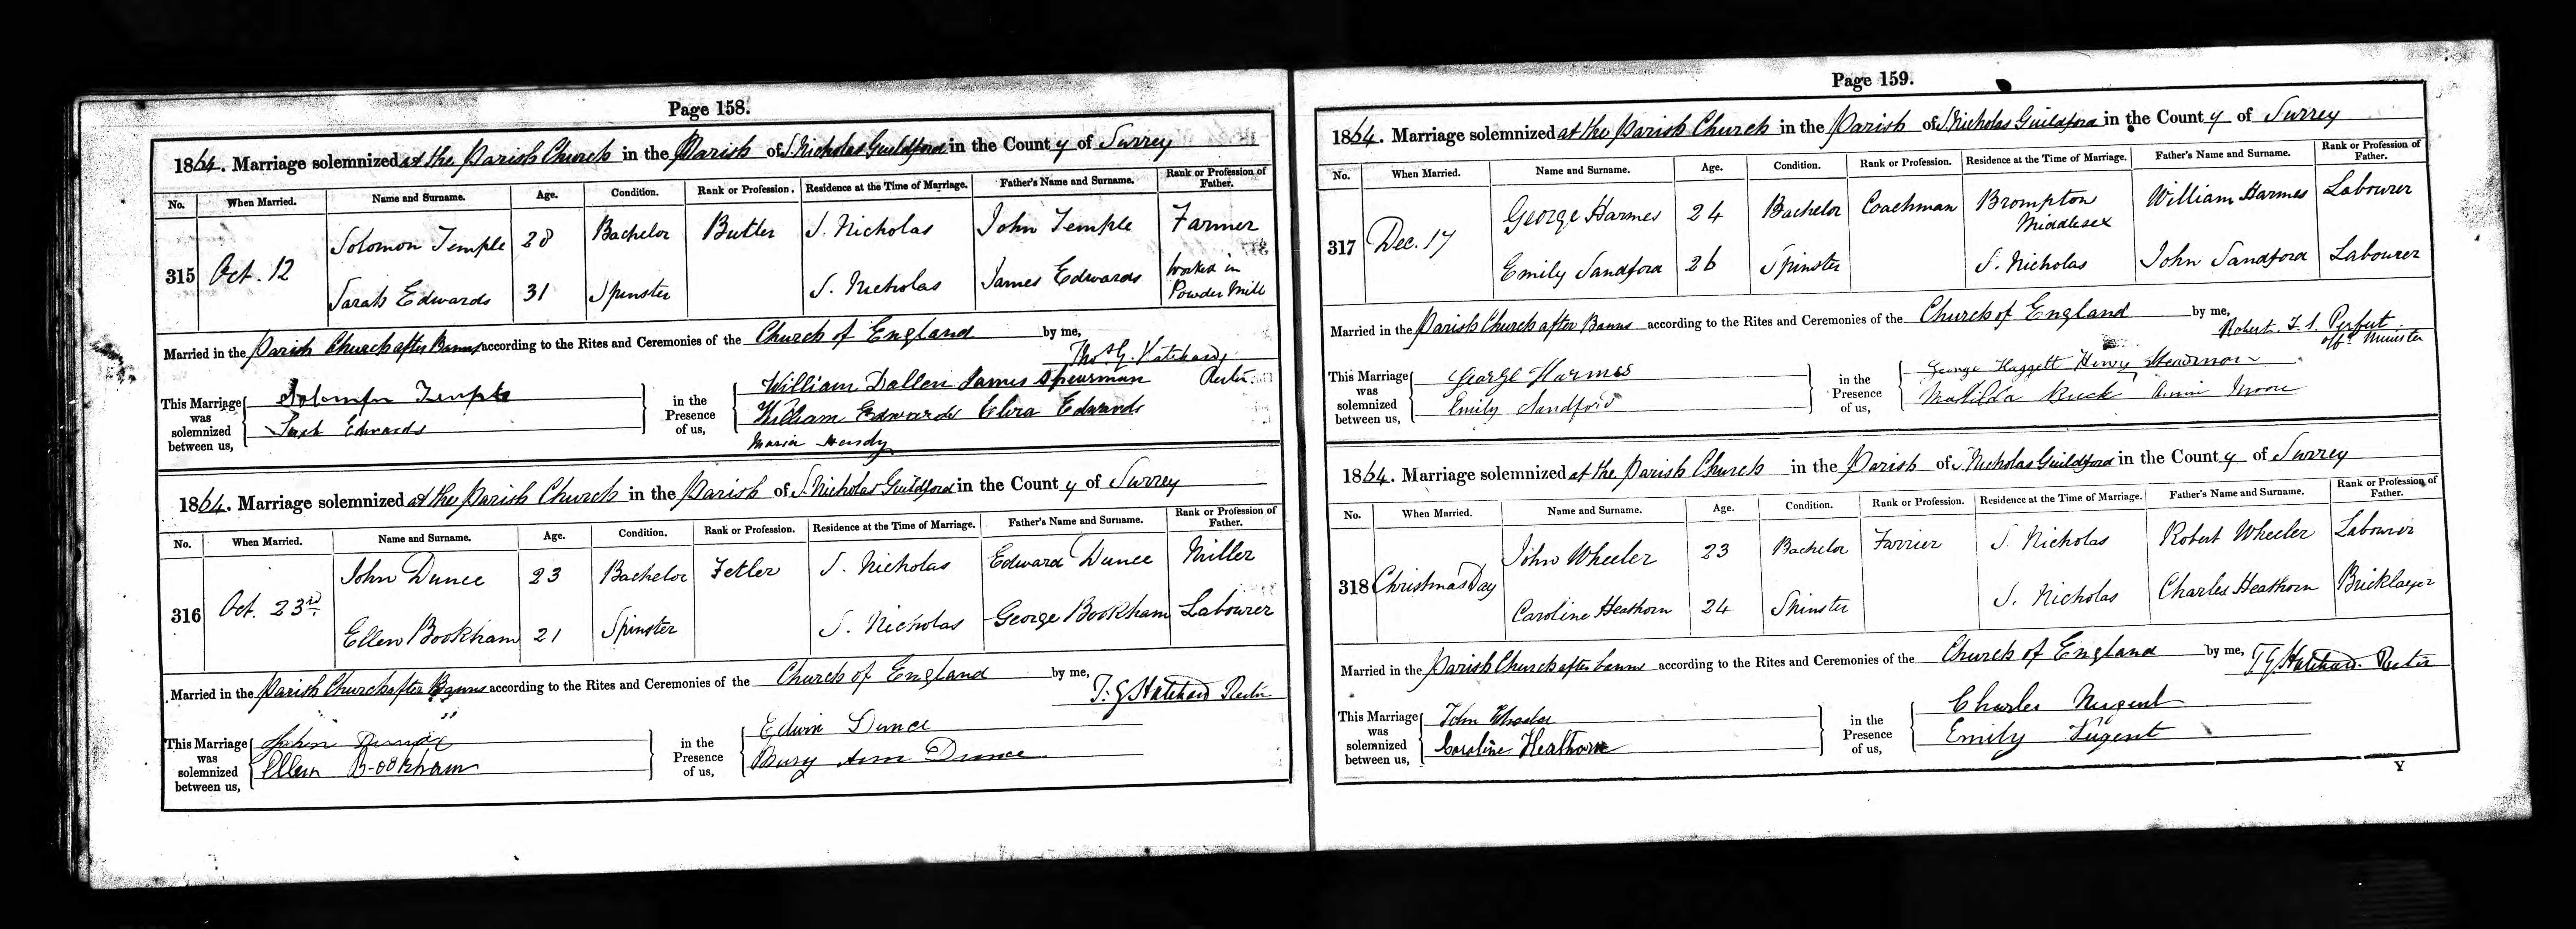 Page 158.
1864. Marriage solemnized at the Parish Church in the Parish of S. Nicholas Guildford in the County of Surrey
No. When Married. Name and Surname. Age. Condition. Rank or Profession. Residence at the Time of Marriage. Father's Name and Surname. Rank or Profession of Father.
315 Oct. 12
Solomon Temple 28 Bachelor Butler S. Nicholas John Temple Farmer
Sarah Edwards 31 Spinster S. Nicholas James Edwards Worked in Powder Mill
Married in the Parish Church after Banns according to the Rites and Ceremonies of the Church of England by me,
Rector
This Marriage was solemnized between us, Solomon Temple
Edwards
in the Presence of us, William Dallen James Spearman
William Edwards Edwards
Maria Hendy
1864. Marriage solemnized at the Parish Church in the Parish of S. Nicholas Guildford in the County of Surrey
No. When Married. Name and Surname. Age. Condition. Rank or Profession. Residence at the Time of Marriage. Father's Name and Surname. Rank or Profession of Father.
316 Oct. 23rd
John Dunce 23 Bachelor Fetler S. Nicholas Edward Dunce Miller
Ellen Bookham 21 Spinster S. Nicholas George Bookham Labourer
Married in the Parish Church after Banns according to the Rites and Ceremonies of the Church of England by me,
T. G. Hatchard Rector
This Marriage was solemnized between us, John
Ellen Bookham
in the Presence of us, Edwin Dunce
Ann Dunce
Page 159.
1864. Marriage solemnized at the Parish Church in the Parish of S. Nicholas Guildford in the County of Surrey
No. When Married. Name and Surname. Age. Condition. Rank or Profession. Residence at the Time of Marriage. Father's Name and Surname. Rank or Profession of Father.
317 Dec. 17
George Harmes 24 Bachelor Coachman Brompton Middlesex William Harmes Labourer
Emily Sandford 26 Spinster S. Nicholas John Sandford Labourer
Married in the Parish Church after Banns according to the Rites and Ceremonies of the Church of England by me,
Robert Perfect
offg Minister
This Marriage was solemnized between us, George Harmes
Emily Sandford
in the Presence of us, George Haggett Henry
Matilda Buck Moore
1864. Marriage solemnized at the Parish Church in the Parish of S. Nicholas Guildford in the County of Surrey
No. When Married. Name and Surname. Age. Condition. Rank or Profession. Residence at the Time of Marriage. Father's Name and Surname. Rank or Profession of Father.
318 Christmas Day
John Wheeler 23 Bachelor Farrier S. Nicholas Robert Wheeler Labourer
Caroline Heathorn 24 Spinster S. Nicholas Charles Heathorn Bricklayer
Married in the Parish Church after banns according to the Rites and Ceremonies of the Church of England by me,
T G Hatchard Rector
This Marriage was solemnized between us, John Wheeler
Caroline Heathorn
in the Presence of us, Charles Nugent
Emily Nugent
Y